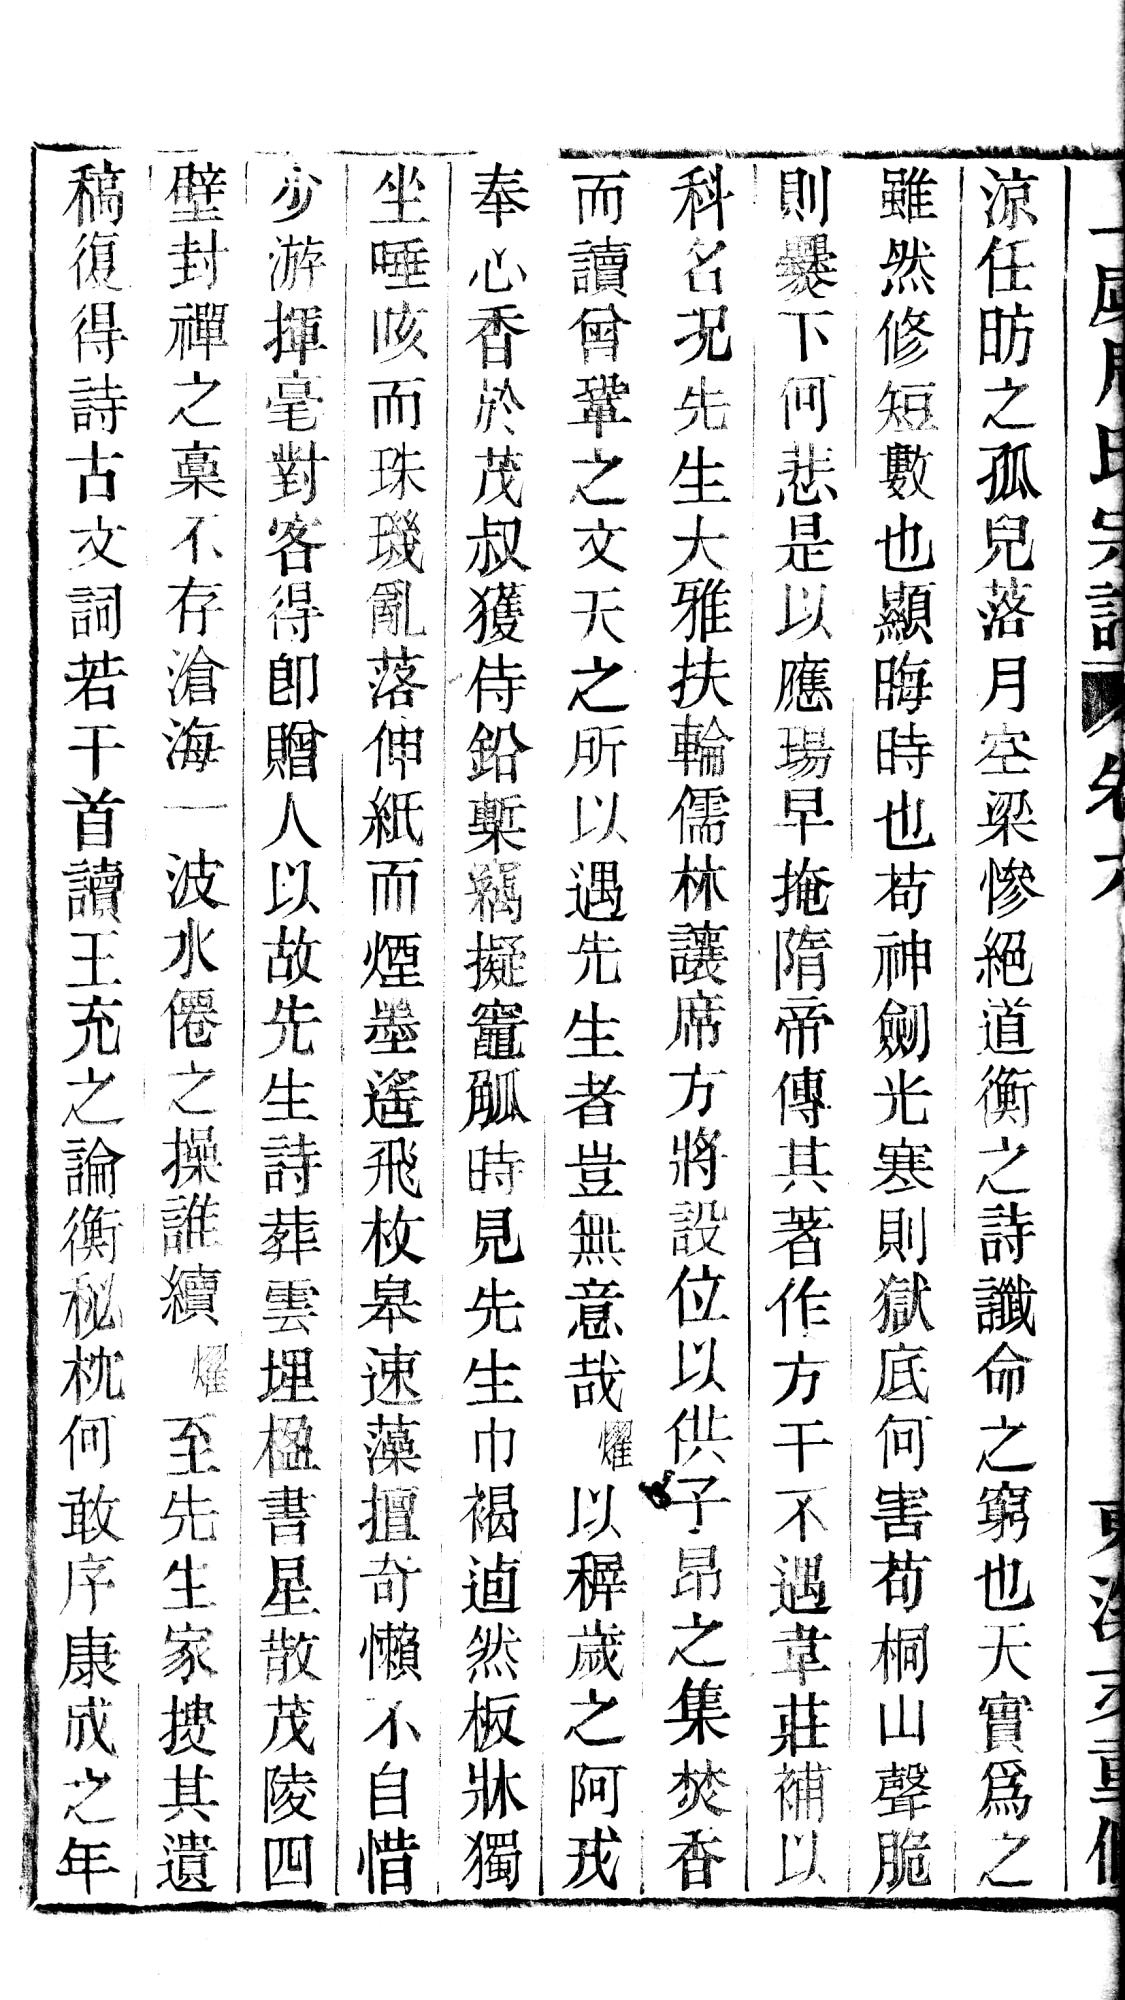 氏宗譜 卷六
重修
涼任昉之孤兒落月空梁慘絕道衡之詩讖命之窮也天實爲之
雖然修短數也顯晦時也苟神劍光寒則獄底何害苟桐山聲脆
則爨下何悲是以應瑒早掩隋帝傳其著作方干不遇韋莊補以
科名況先生大雅扶輪儒林讓席方將設位以供子昂之集焚香
而讀曾鞏之文天之所以遇先生者豈無意哉燿以穉歲之阿戎
奉心香於茂叔獲侍鉛槧竊擬竈觚時見先生巾褐逌然板牀獨
坐唾咳而珠璣亂落伸紙而煙墨遙飛枚皋速藻擅奇懶不自惜
少游揮毫對客得卽贈人以故先生詩葬雲埋楹書星散茂陵四
壁封禪之稾不存滄海一波水僊之操誰續燿至先生家搜其遺
稿復得詩古文詞若干首讀王充之論衡秘枕何敢序康成之年